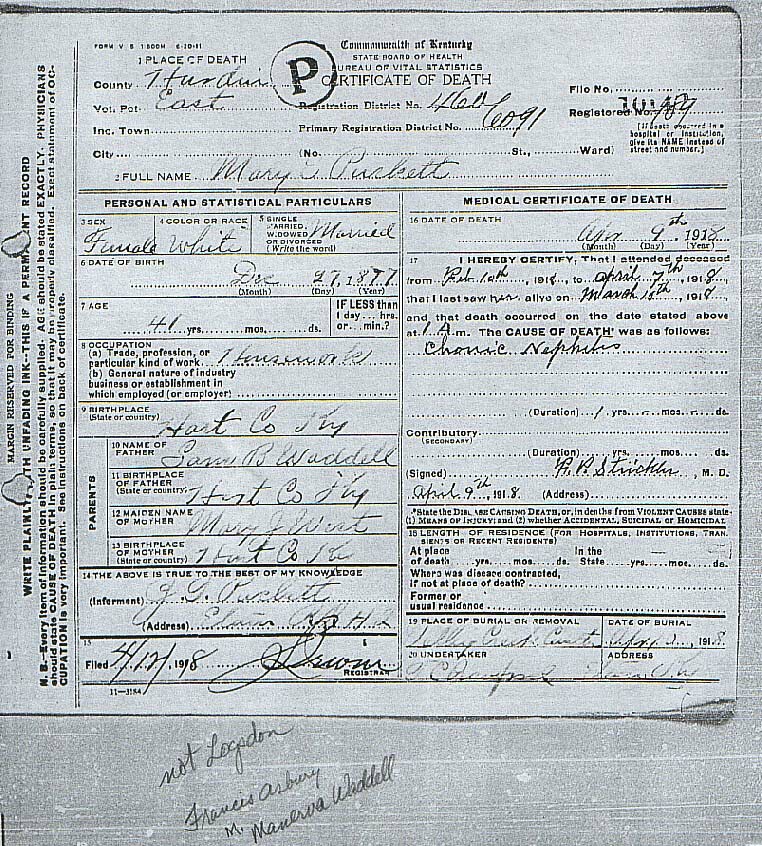 FORM V S 1 500M 6-20-11
Commonwealth of Kentucky
STATE BOARD OF HEALTH
BUREAU OF VITAL STATISTICS
CERTIFICATE OF DEATH
P
1 PLACE OF DEATH
County Hardin
Vot. Pct. East
Inc. Town
City
Registration District No. 460
Primary Registration District No. 6091
(No. St., Ward)
File No.
Registered No.
(If death occurred in a hospital or institution, give its NAME instead of street and number.)
2 FULL NAME Mary Puckett
PERSONAL AND STATISTICAL PARTICULARS
3 SEX Female
4 COLOR OR RACE White
5 SINGLE MARRIED, WIDOWED OR DIVORCED (Write the word) Married
6 DATE OF BIRTH
Dec 27, 1877
(Month) (Day) (Year)
7 AGE
41 yrs. mos. ds.
IF LESS than
1 day hrs.
or min.?
8 OCCUPATION
(a) Trade, profession, or
particular kind of work Housework
(b) General nature of industry
business or establishment in
which employed (or employer)
9 BIRTHPLACE
(State or country) Hart Co Ky
PARENTS
10 NAME OF FATHER B Waddell
11 BIRTHPLACE OF FATHER (State or country) Hart Co Ky
12 MAIDEN NAME OF MOTHER Mary J West
13 BIRTHPLACE OF MOTHER (State or country) Hart Co Ky
14 THE ABOVE IS TRUE TO THE BEST OF MY KNOWLEDGE
(Informent) J. G. Puckett
(Address)
15
Filed 4/12/, 1918
REGISTRAR
11-3184
MEDICAL CERTIFICATE OF DEATH
16 DATE OF DEATH
Apr 9th 1918
(Month) (Day) (Year)
17 I HEREBY CERTIFY, That I attended deceased
from Feb 10th, 1918, to April 7th, 1918
that I last saw her alive on March 10th, 1918
and that death occurred on the date stated above
at 1 A m. The CAUSE OF DEATH* was as follows:
Chonic Nephitis
(Duration) 1 yrs. mos. ds.
Contributory
(SECONDARY)
(Duration) yrs. mos. ds.
(Signed) Strickler, M. D.
April 9th, 1918 (Address)
*State the DISEASE CAUSING DEATH, or, in deaths from VIOLENT CAUSES state
(1) MEANS OF INJURY; and (2) whether ACCIDENTAL, SUICIDAL or HOMICIDAL
18 LENGTH OF RESIDENCE (FOR HOSPITALS, INSTITUTIONS, TRAN-
SIENTS OR RECENT RESIDENTS)
At place In the
of death yrs. mos. ds. State yrs. mos. ds.
Where was disease contracted,
if not at place of death?
Former or
usual residence
19 PLACE OF BURIAL OR REMOVAL
DATE OF BURIAL
1918
20 UNDERTAKER
ADDRESS
MARGIN RESERVED FOR BINDING
WRITE PLAINLY, WITH UNFADING INK--THIS IF A PERMANENT RECORD
N. B.--Every item of information should be carefully supplied. AGE should be stated EXACTLY. PHYSICIANS
should state CAUSE OF DEATH in plain terms, so that it may be properly classified. Exact statement of OC-
CUPATION is very important. See instructions on back of certificate.
not Logsdon
Francis Asbury
m. Manerva Waddell